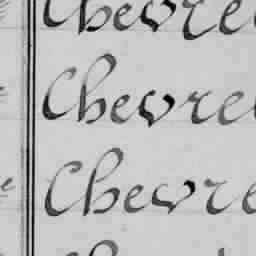 Chevre
Chevre
Chevre